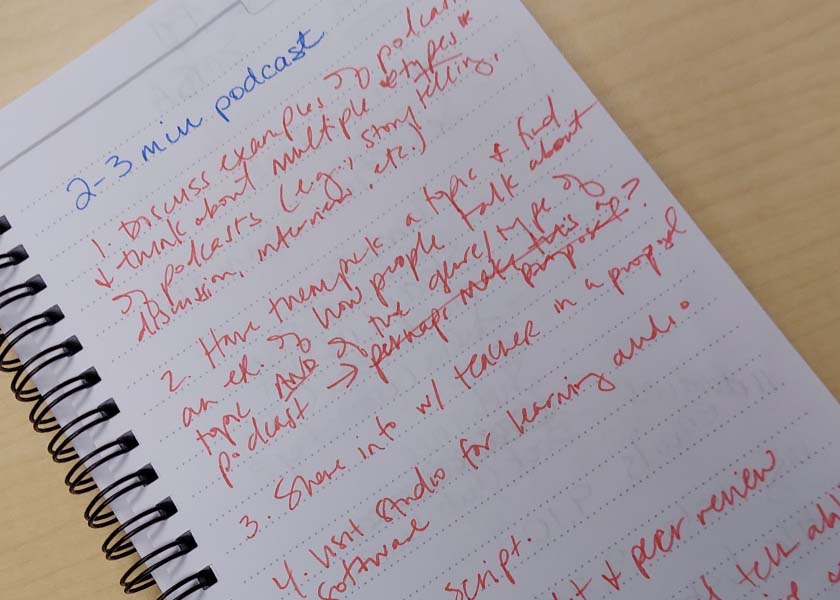 2-3 min podcast
1. Discuss examples of podcasts
& think about multiple *types*
of podcasts (e.g., story telling,
discussion, interviews, etc.)
2. Have them pick a topic & find
an ex. of how people talk about
topic AND of the genre/type of
podcast → perhaps make this a
proposal?
3. Share info w/ teacher in a proposal
4. Visit studio for learning audio
software
script.
& peer review
tell